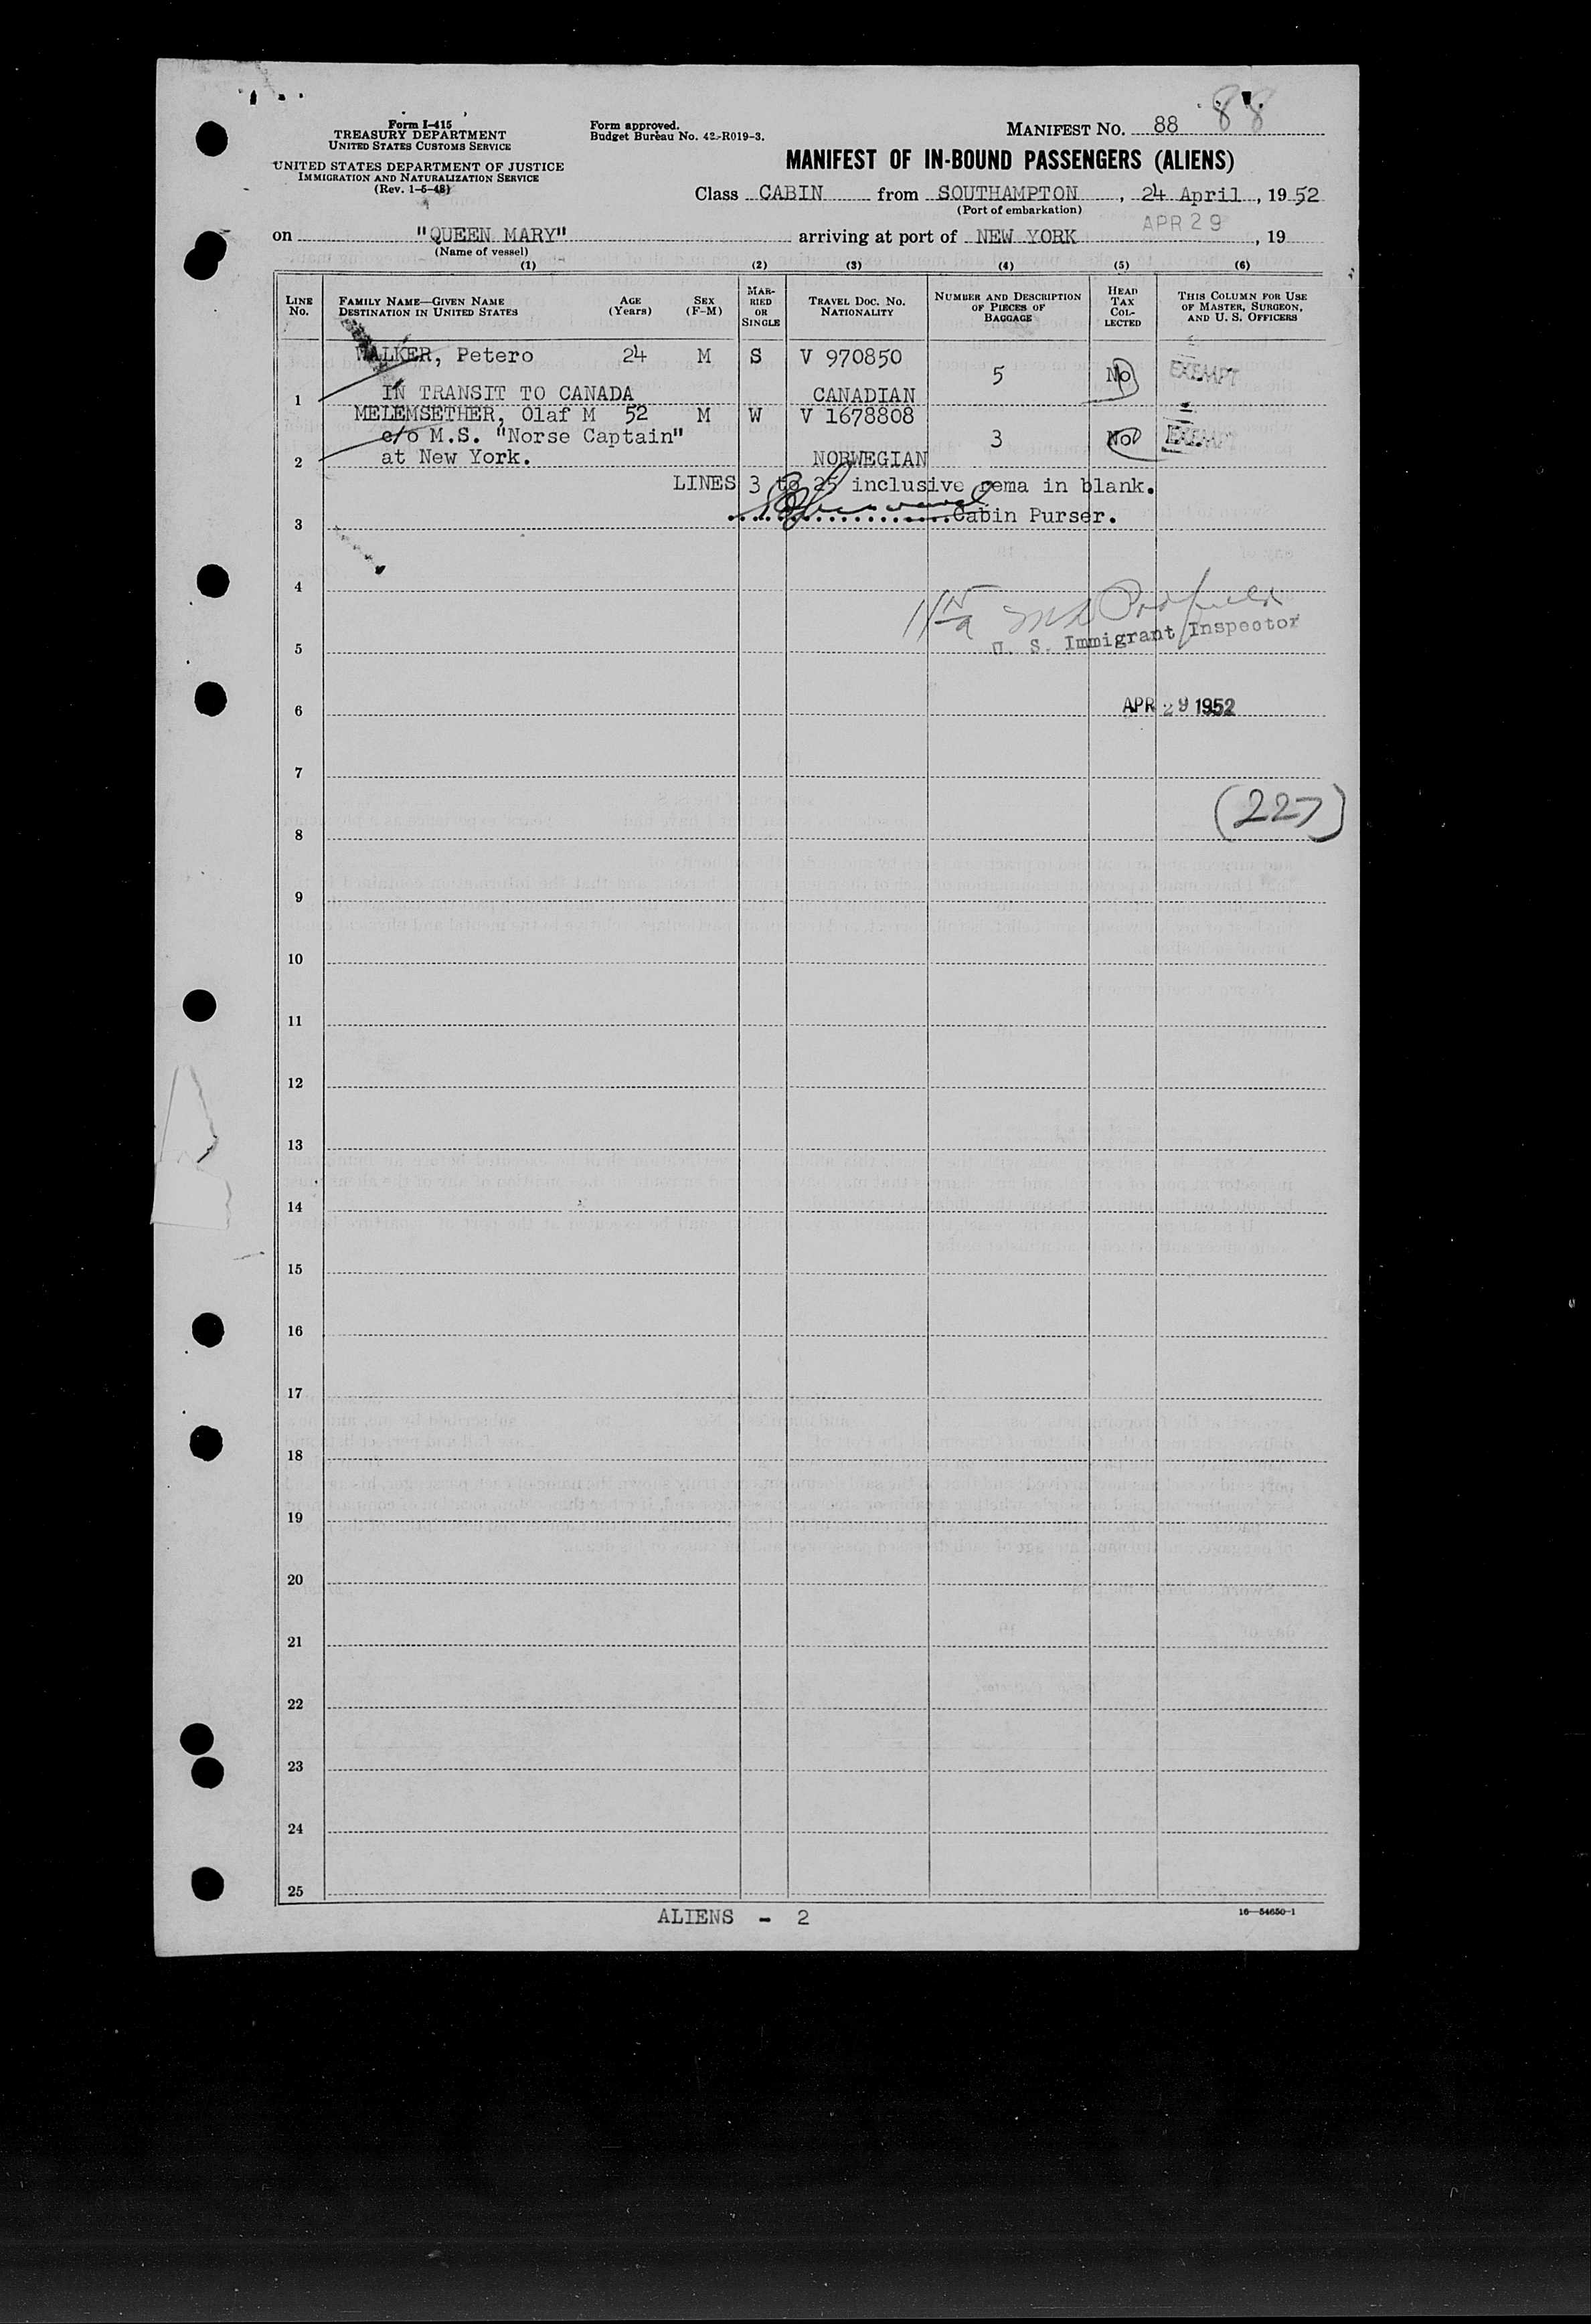 Form I-415
TREASURY DEPARTMENT
UNITED STATES CUSTOMS SERVICE
UNITED STATES DEPARTMENT OF JUSTICE
IMMIGRATION AND NATURALIZATION SERVICE
(Rev. 1-5-48)
Form approved.
Budget Bureau No. 42-R019-3.
MANIFEST NO. 88 88
MANIFEST OF IN-BOUND PASSENGERS (ALIENS)
Class CABIN from SOUTHAMPTON, 24 April, 1952
(Port of embarkation)
APR 29
on "QUEEN MARY" arriving at port of NEW YORK, 19
(Name of vessel)
(1) (2) (3) (4) (5) (6)
LINE No. FAMILY NAME—GIVEN NAME DESTINATION IN UNITED STATES AGE (Years) SEX (F-M) MARRIED OR SINGLE TRAVEL DOC. NO. NATIONALITY NUMBER AND DESCRIPTION OF PIECES OF BAGGAGE HEAD TAX COLLECTED THIS COLUMN FOR USE OF MASTER, SURGEON, AND U. S. OFFICERS
WALKER, Petero 24 M S V 970850
5 No EXEMPT
1 IN TRANSIT TO CANADA CANADIAN
MELEMSETHER, Olaf M 52 M W V 1678808
c/o M.S. "Norse Captain" 3 No EXEMPT
2 at New York. NORWEGIAN
LINES 3 to 25 inclusive rema in blank.
3 Cabin Purser.
4
5 U. S. Immigrant Inspector
6 APR 29 1952
7
(227)
8
9
10
11
12
13
14
15
16
17
18
19
20
21
22
23
24
25
ALIENS - 2
16—54650-1